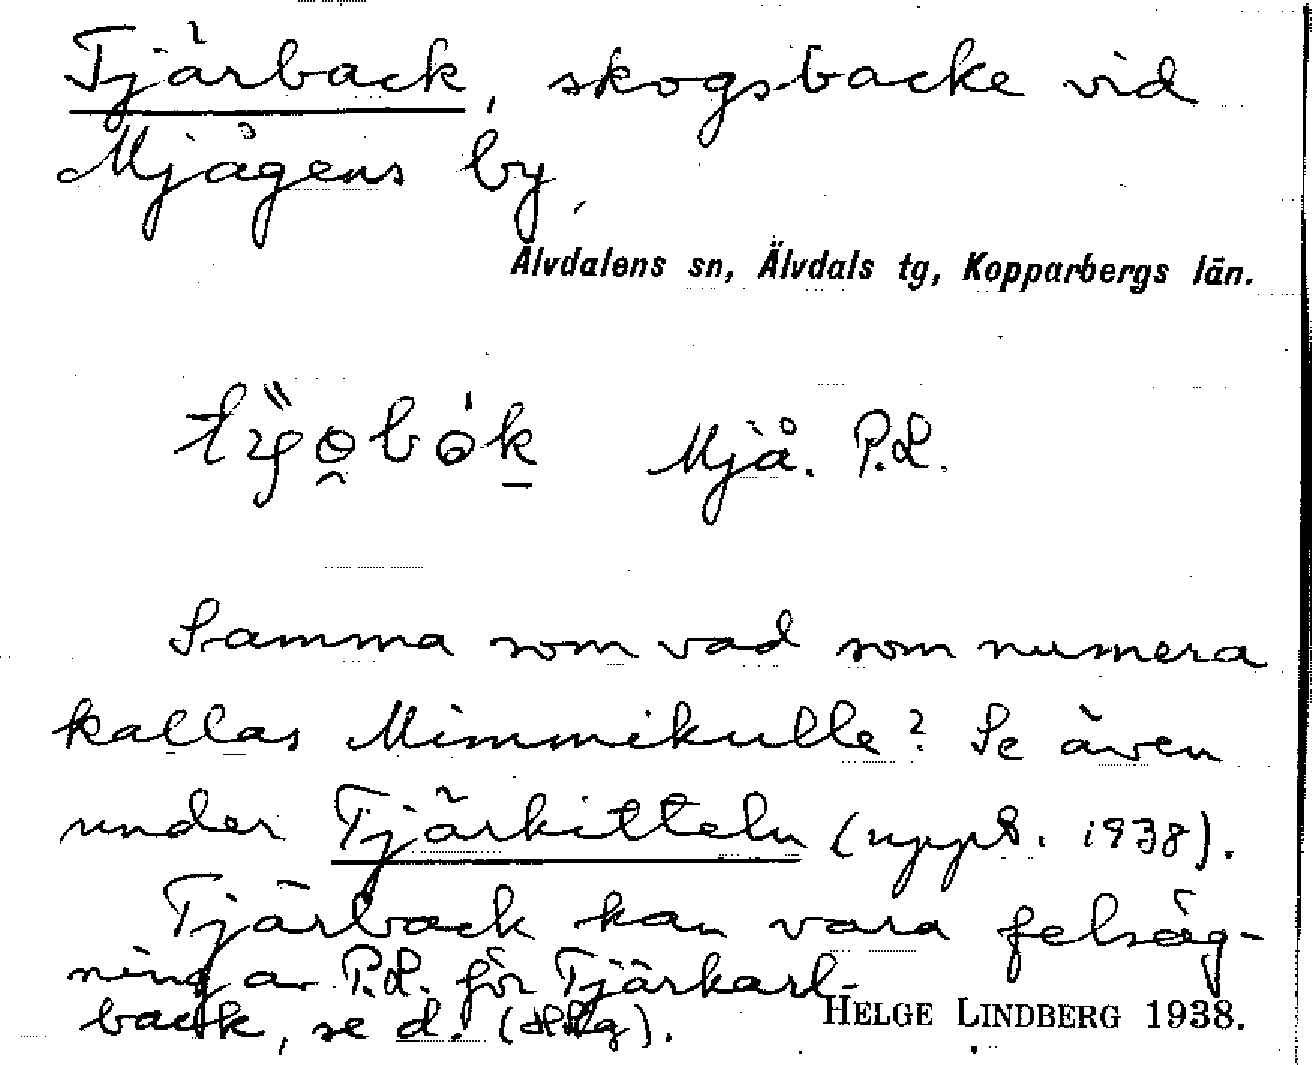 Tjärback, skogsbacke vid
Mjågens by.
Älvdalens sn, Älvdals tg, Kopparbergs län.
Mjå. P.L.
Samma som vad som numera
kallas Mimmikulle? Se även
under Tjärkitteln (uppt. 1938).
Tjärback kan vara felsäg-
ning av P.L. för Tjärkarl-
back, se d.
HELGE LINDBERG 1938.